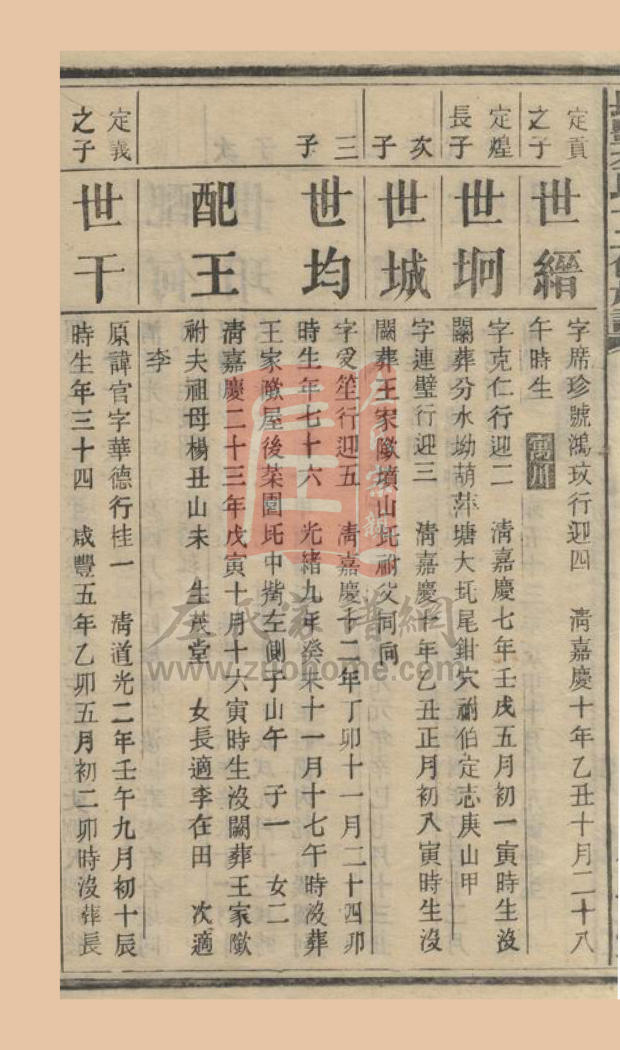 定貢
之子
世縉
字席珍號鴻玟行迎四 淸嘉慶十年乙丑十月二十八
午時生
定煌
長子
世坰
字克仁行迎二 淸嘉慶七年壬戌五月初一寅時生沒
闕葬分水坳葫萍塘大坵尾鉗穴祔伯定志庚山甲
次
子
世城
字連璧行迎三 淸嘉慶十年乙丑正月初八寅時生沒
闕葬王家歐墳山坵祔父同向
三
子
世均
字受笙行迎五 淸嘉慶十二年丁卯十一月二十四卯
時生年七十六 光緒九年癸未十一月十七午時沒葬
王家歐屋後菜園坵中嘴左側子山午 子一 女二
配王
淸嘉慶二十三年戊寅十月十六寅時生沒闕葬王家歐
祔夫祖母楊丑山未 生英堂 女長適李在田 次適
李
定義
之子
世干
原諱官字華德行桂一 淸道光二年壬午九月初十辰
時生年三十四 咸豐五年乙卯五月初二卯時沒葬長
左氏家譜網
www.zuohome.com